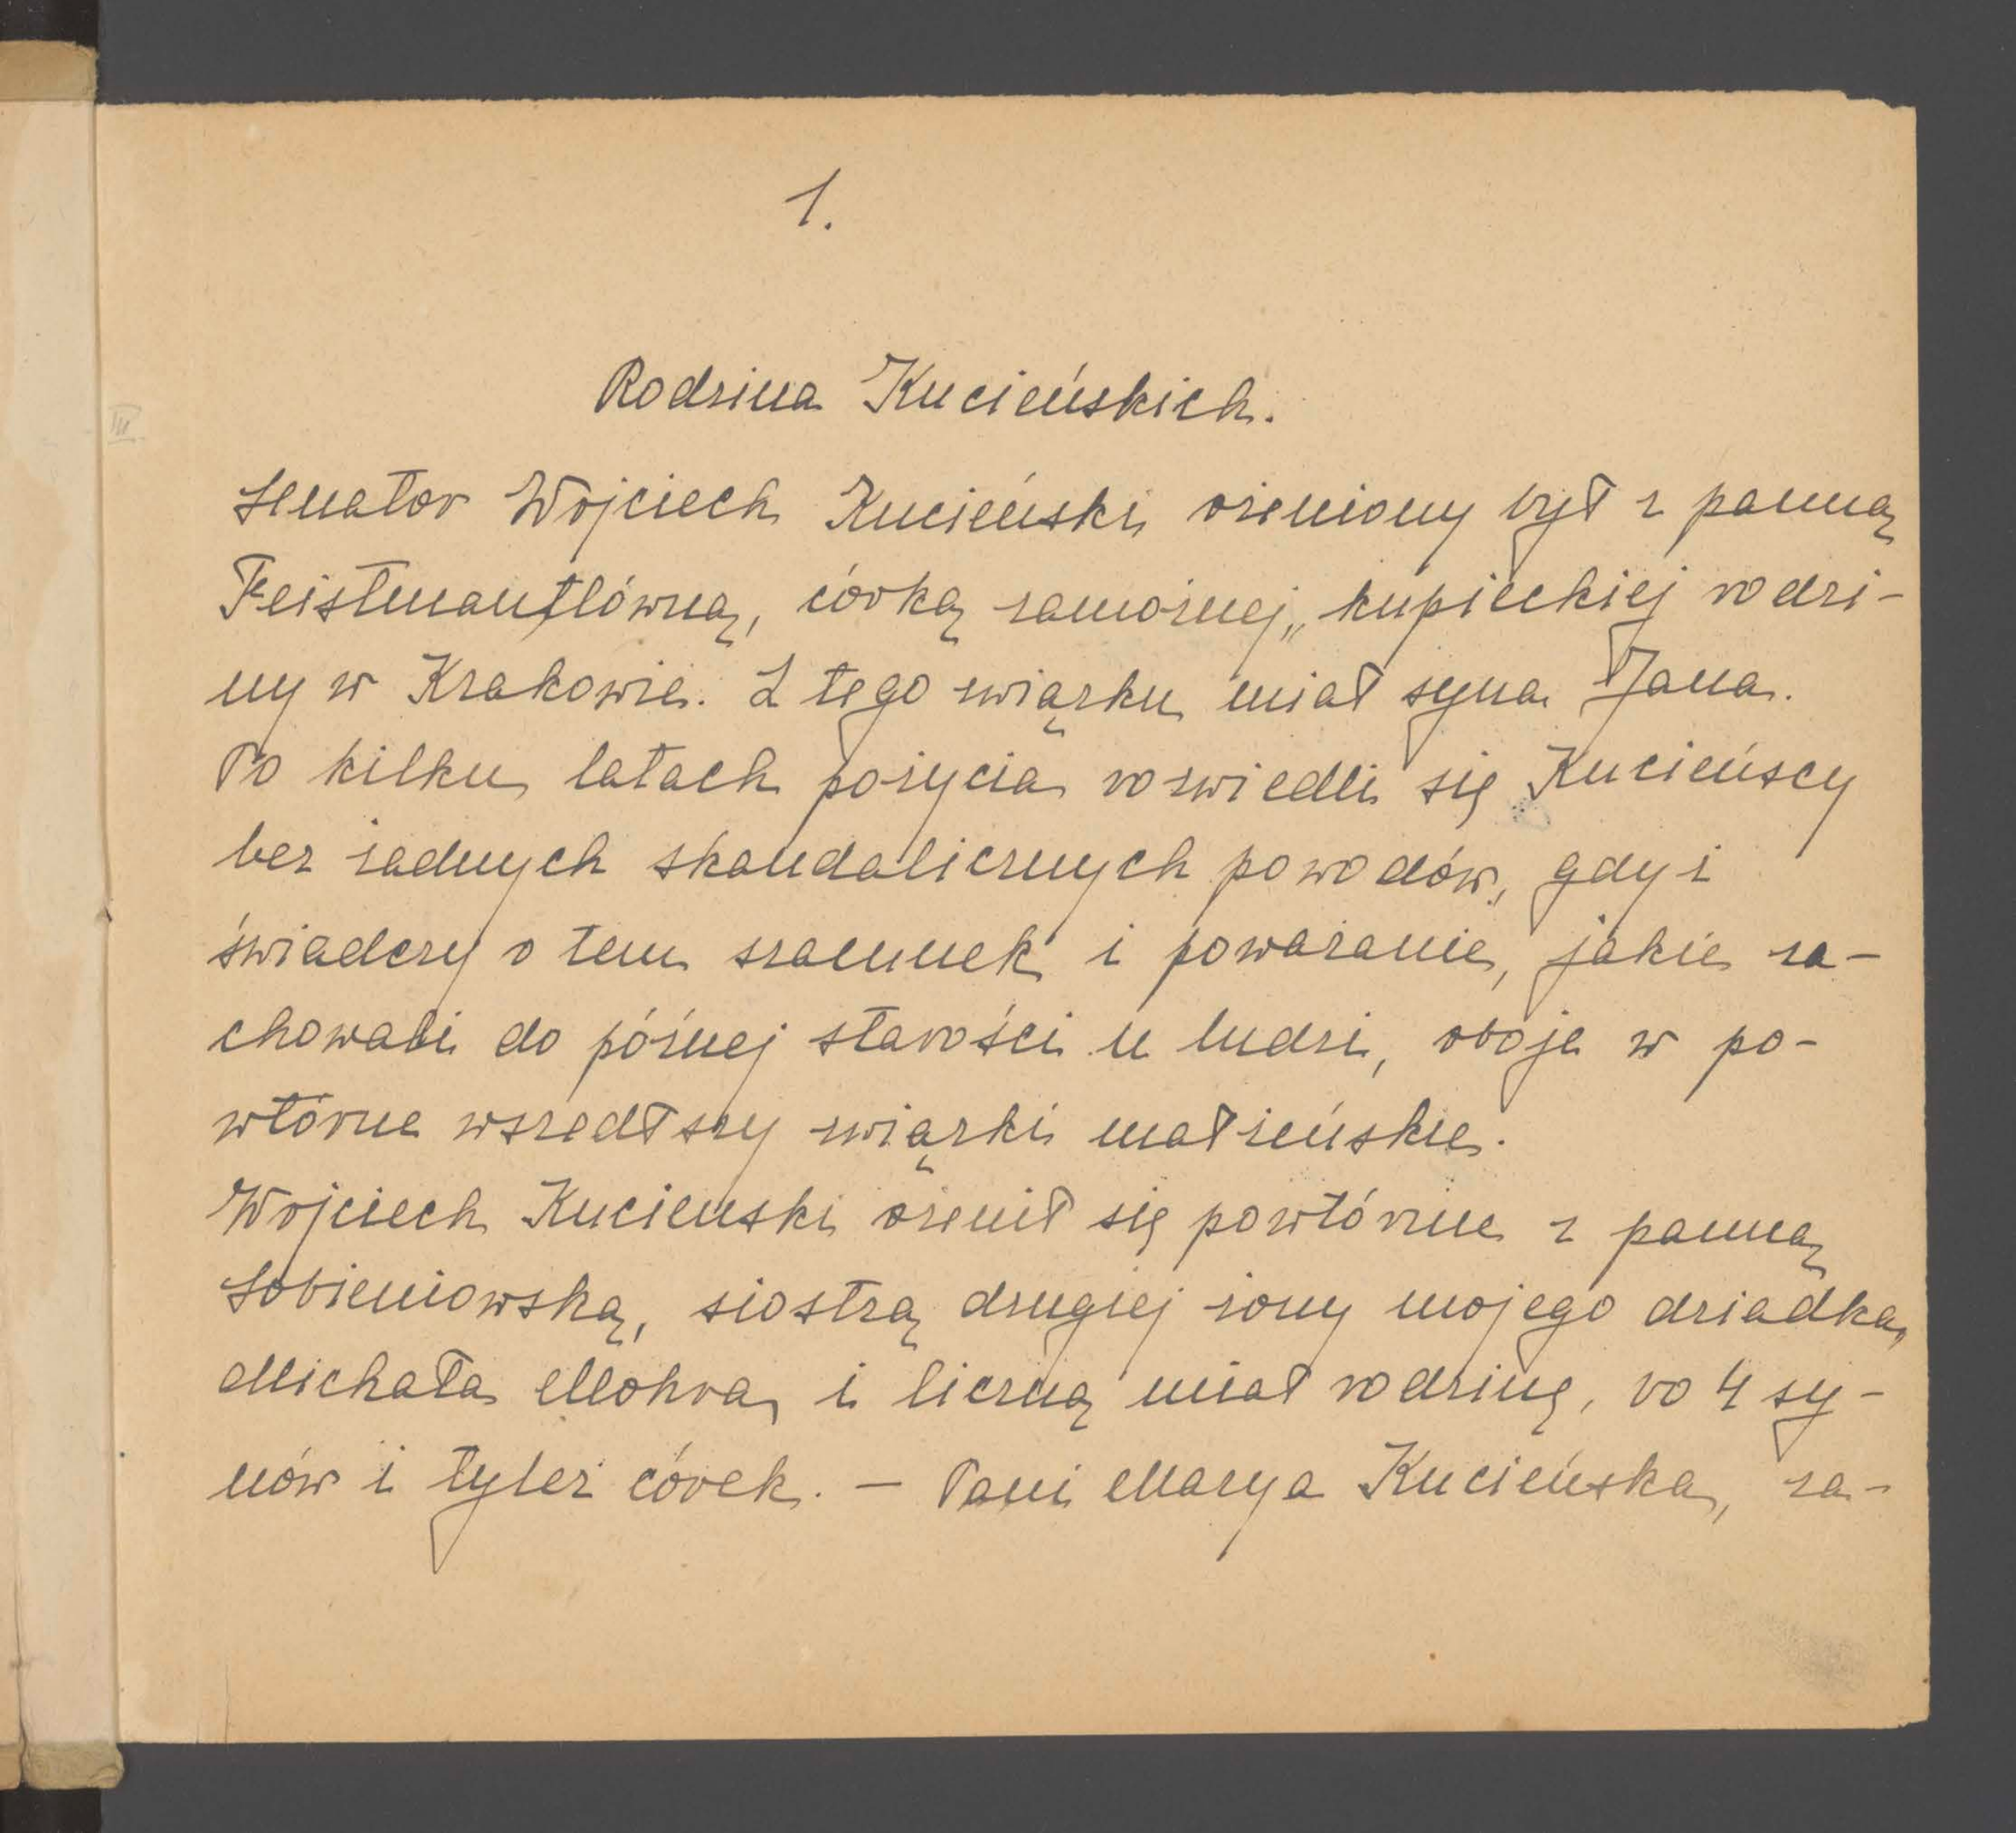 1.
Rodzina Kucieńskich.
III.
Senator Wojciech Kucieński ożeniony był z panną
Feistmantlówną, córką zamożnej, kupieckiej rodzi-
ny w Krakowie. Z tego związku miał syna Jana.
Po kilku latach pożycia rozwiedli się Kucieńscy
bez żadnych skandalicznych powodów, gdyż
świadczy o tem szacunek i poważanie, jakie za-
chowali do późnej starości u ludzi, oboje w po-
wtórne wszedłszy związki małżeńskie.
Wojciech Kucienski ożenił się powtórnie z panną
Sobieniowską, siostrą drugiej żony mojego dziadka,
Michała Mohra, i liczną miał rodzinę, bo 4 sy-
nów i tyleż córek. — Pani Marya Kucieńska, za-